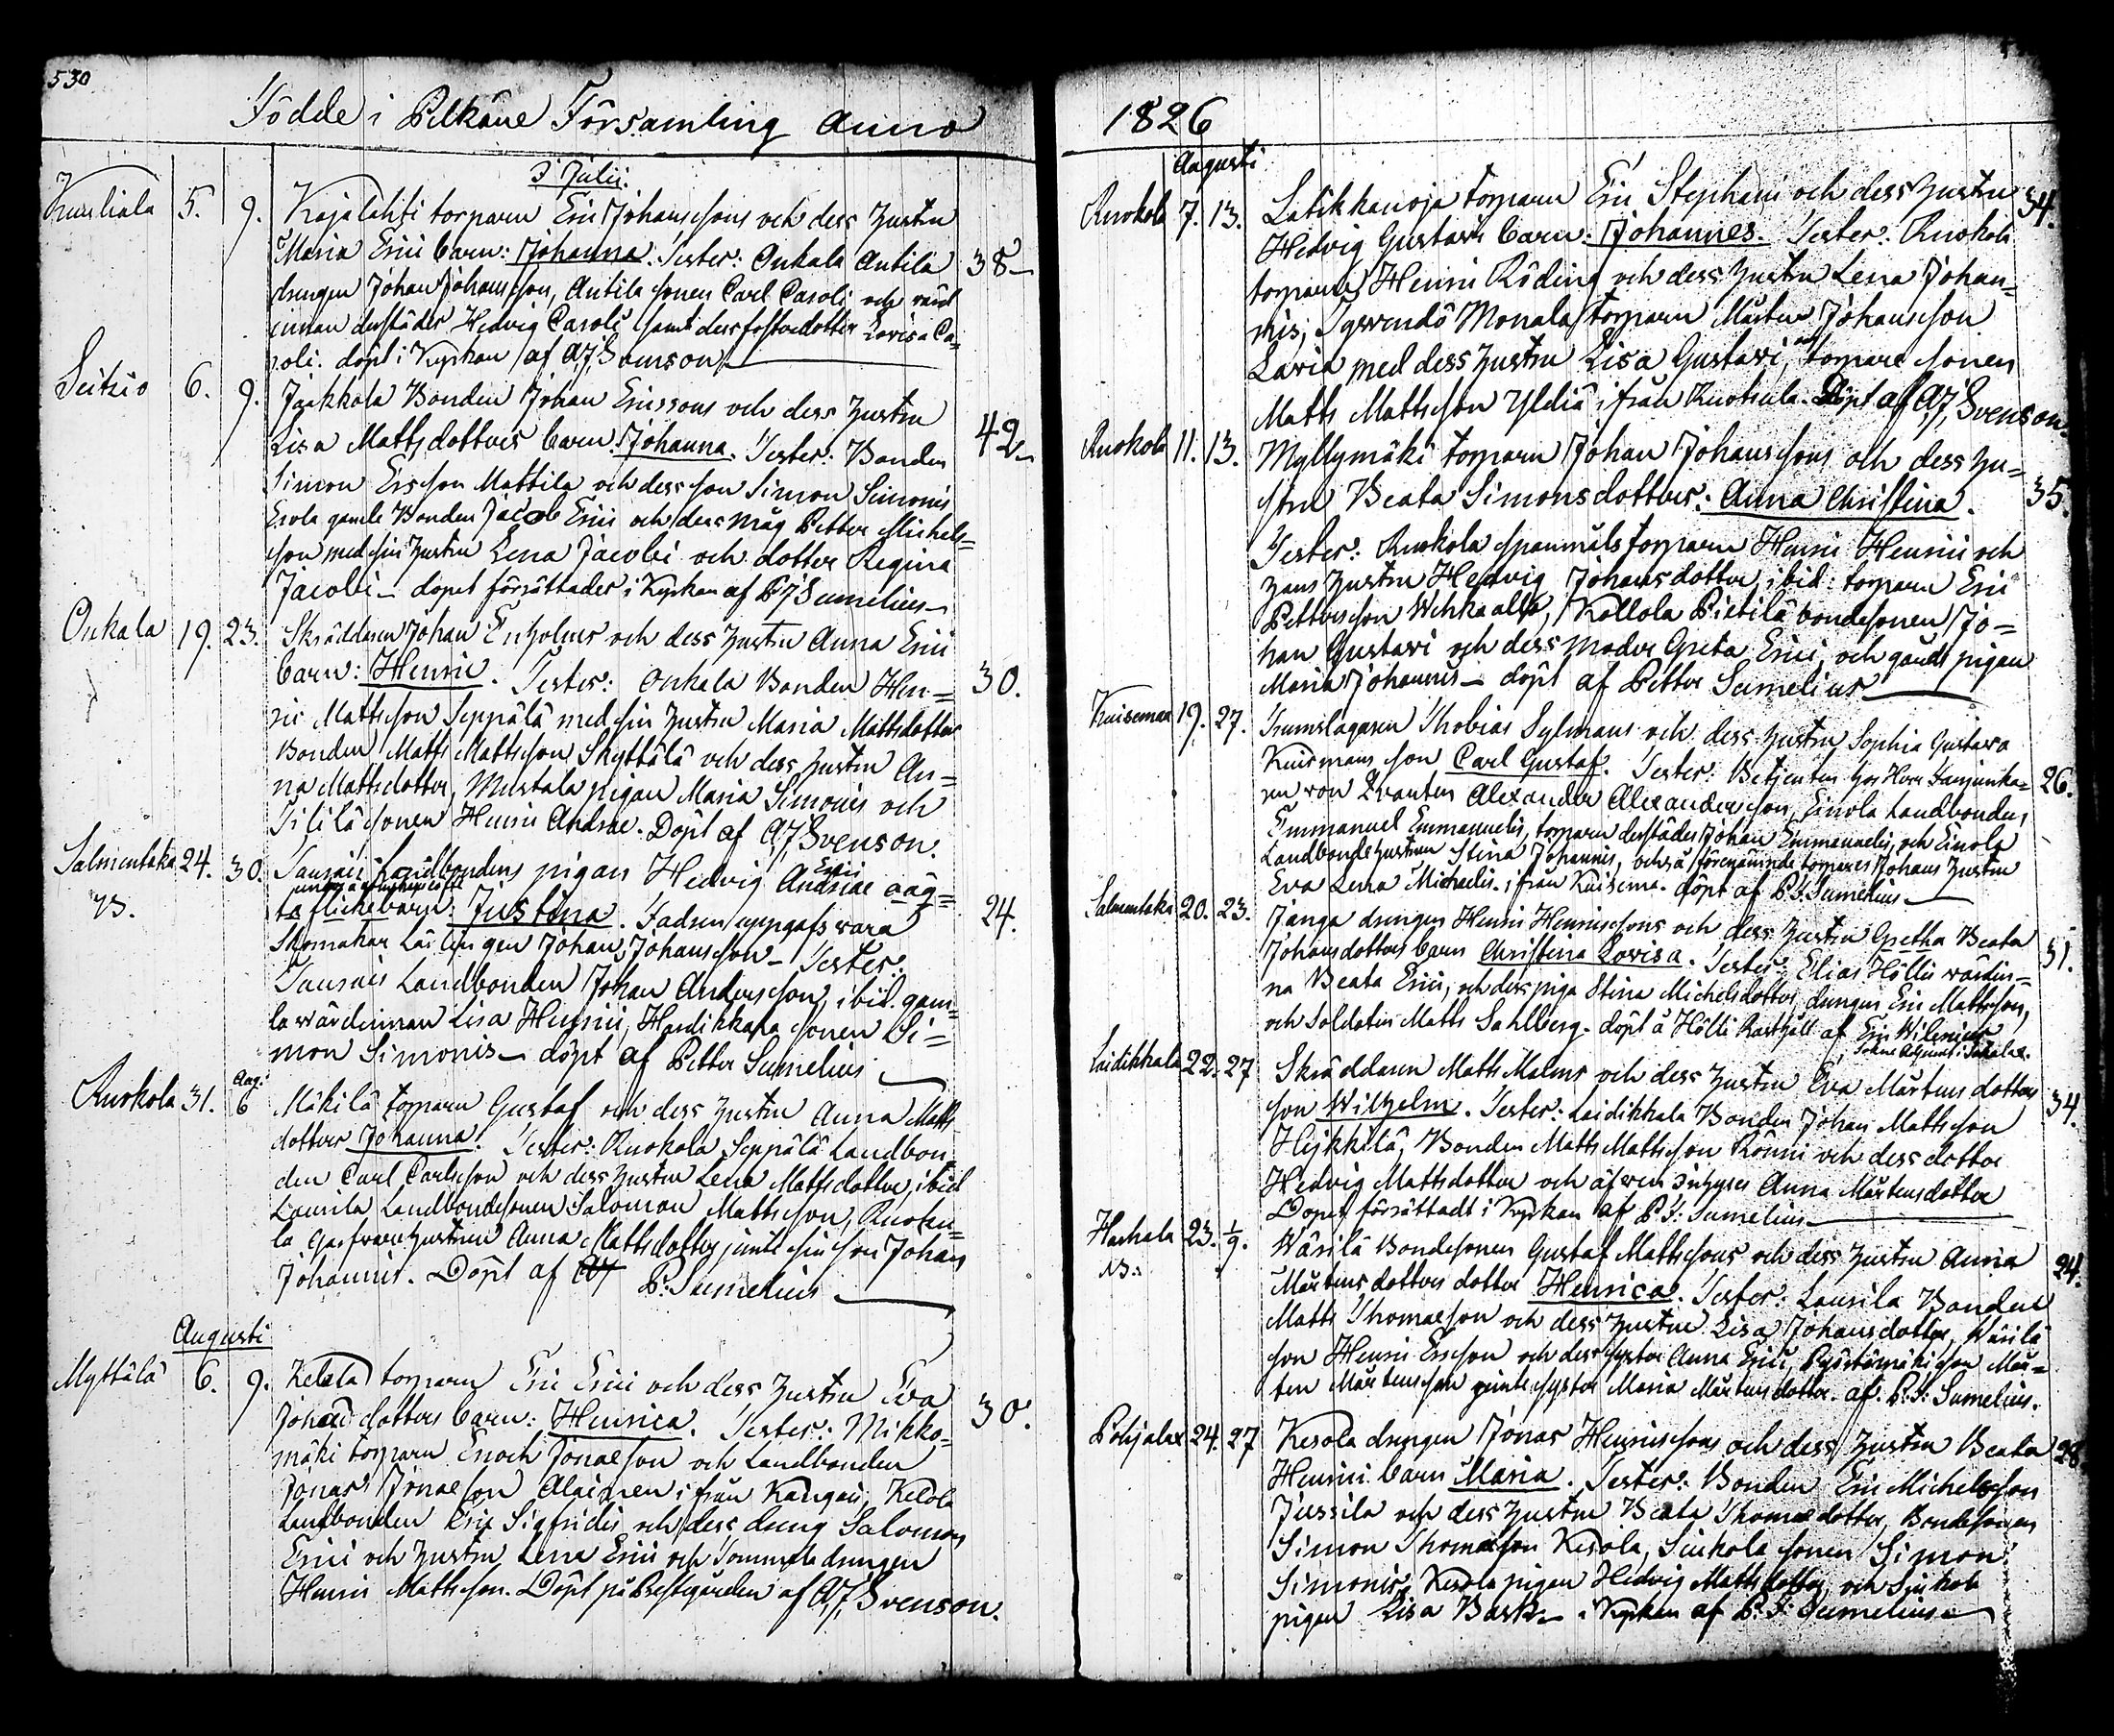 530
Födde i Pelkäne Församling Anno
i Julii.
Kuuliala 5. 9. Kajalahti torparen Eric Johanssons och dess hustru
Maria Erici barn: Johanna. Tester: Onkala Antila 38
drengen Johan Johansson, Antila sonen Carl Caroli och värd
innan derstädes Hedvig Caroli samt dess fosterdotter Lovisa Ca=
roli. döpt i Kyrkan af A.J. Svenson
Seitzio 6. 9. Jaakkola Bonden Johan Ericssons och dess hustru
Lisa Mattsdotters barn: Johanna. Tester: Bonden 42
Simon Ersson Mattila och dess son Simon Simonis
Erola gamle Bonden Jacob Erici och dess måg Petter Michels=
son med sin hustru Lena Jacobi och dotter Regina
Jacobi - dopet förrättades i Kyrkan af P J Sumelius
Onkala 19. 23. Skräddaren Johan Enholms och dess hustru Anna Erici
barn: Henric. Tester: Onkala Bonden Hen= 30.
ric Mattsson Seppälä med sin hustru Maria Mattsdotter
Bonden Matts Mattsson Skyttälä och dess hustru An=
na Mattsdotter, Mustala pigan Maria Simonis och
Tililä sonen Henric Andreae. Döpt af A.J. Svenson.
Salmentaka 24. 30. Landbondens pigan Hedvig Andreae Erici oäg=
NB. ta flickebarn: Justina. Fadren uppgafs vara 24.
Skomakar Lärlingen Johan Johansson - Tester:
Landbonden Johan Andersson, ibid. gam=
la värdinnan Lisa Henrici, Hardikkala sonen Si=
mon Simonis - döpt af Petter Sumelius
Ruokola 31. Aug. 6 Mäkilä torparen Gustaf och dess hustru Anna Matts
dotters Johanna. Tester: Ruokola Seppälä Landbon
den Carl Carlsson och dess hustru Lena Mattsdotter, ibid
Laurila Landbondesonen Salomon Mattsson, Ruoko
la hustrun Anna Mattsdotter jemte sin son Johan
Johannis. Döpt af P. Sumelius
Augusti
Myttälä 6. 9. Kelola torparen Eric Erici och dess hustru Eva
Johansdotters barn: Henrica. Tester: Mikko= 30.
mäki torparen Enoch Jonaeson och Landbonden
Jonas Jonaeson Alainen ifrån Kangais, Kelola
Landbonden Eric Sigfridis och dess dreng Salomon
Erici och hustru Lena Erici och Tommola drengen
Henric Mattsson. Döpt på Prestgården af A.J. Svenson.
1826
Augusti
Ruokola 7. 13. Latikkanoja torparen Eric Stephani och dess hustru 34.
Hedvig Gustavi barn: Johannes. Tester: Ruokola
torparen Henric Röding och dess hustru Lena Johan=
nis, Monala torparen Mårten Johansson
Laria med dess hustru Lisa Gustavi, torpare sonen
Matts Mattsson Yldiä ifrån Ruokola. Döpt af A.J. Svenson.
Ruokola 11. 13. Myllymäki torparen Johan Johanssons och dess hu=
stru Beata Simonsdotters: Anna Christina. 35.
Tester: Ruokola spanmåls torparen Henric Henrici och
hans hustru Hedvig Johansdotter, ibid: torparen Eric
Pettersson Wehkaalho, Kollola Pietilä bondesonen Jo=
han Gustavi och dess moder Greta Erici, och pigan
Maria Johannis - döpt af Petter Sumelius
Kuisemaa 19. 27. Trumslagaren Thobias Sylmans och dess hustru Sophia Gustava
Kuismans son Carl Gustaf. Tester: Betjenten hos Herr 26.
von Qvanten Alexander Alexandersson, Einola Landbonden
Emmanuel Emmanuelis, torparen derstädes Johan Emmanuelis, och Einola
Landbonde hustrun Stina Johannis, också förenämnde torpares Johans hustru
Eva Lena Michaelis. ifrån Kuisema. döpt af P.J. Sumelius
Salmentaka 20. 23. Janga drengen Henric Henricssons och dess hustru Gretha Beata
Johansdotters barn Christina Lovisa. Tester: Elias Hölli värdin= 31.
na Beata Erici, och dess piga Stina Michelsdotter, drengen Eric Mattsson,
och Soldaten Matts Sahlberg. döpt å Hölli Rusthåll af Eric Wilenius
Sockne Adjunct i Sahalax.
Laidikkala 22. 27 Skräddaren Matts Malms och dess hustru Eva Mårtens dotters
son Wilhelm. Tester: Laidikkala Bonden Johan Mattsson 34.
Heikkilä, Bonden Matts Mattsson Rönni och dess dotter
Hedvig Mattsdotter och äfven Inhyses Anna Mårtensdotter
Dopet förrättadt i Kyrkan af P. J: Sumelius
Harhala 23. 1/9. Wäsilä Bondesonen Gustaf Mattssons och dess hustru Anna 24.
NB: Mårtens dotters dotter Henrica. Tester: Laurila Bonden
Matts Thomaeson och dess hustru Lisa Johansdotter, Wäsilä
son Henric Ersson och dess syster Anna Erici, son Mår=
ten Mårtensson jemte syster Maria Mårtensdotter. af. P. J: Sumelius.
Pohjalax 24. 27 Kesola drengen Jonas Henricssons och dess hustru Beata 28.
Henrici barn Maria. Tester: Bonden Eric Michelsson
Jussila och dess hustru Beata Thomaedotter, Bondesonen
Simon Thomaeson Kesola, Sinkola sonen Simon
Simonis, Kesola pigan Hedvig Mattsdotter och Sinkola
pigan Lisa Bark - i Kyrkan af P. J: Sumelius